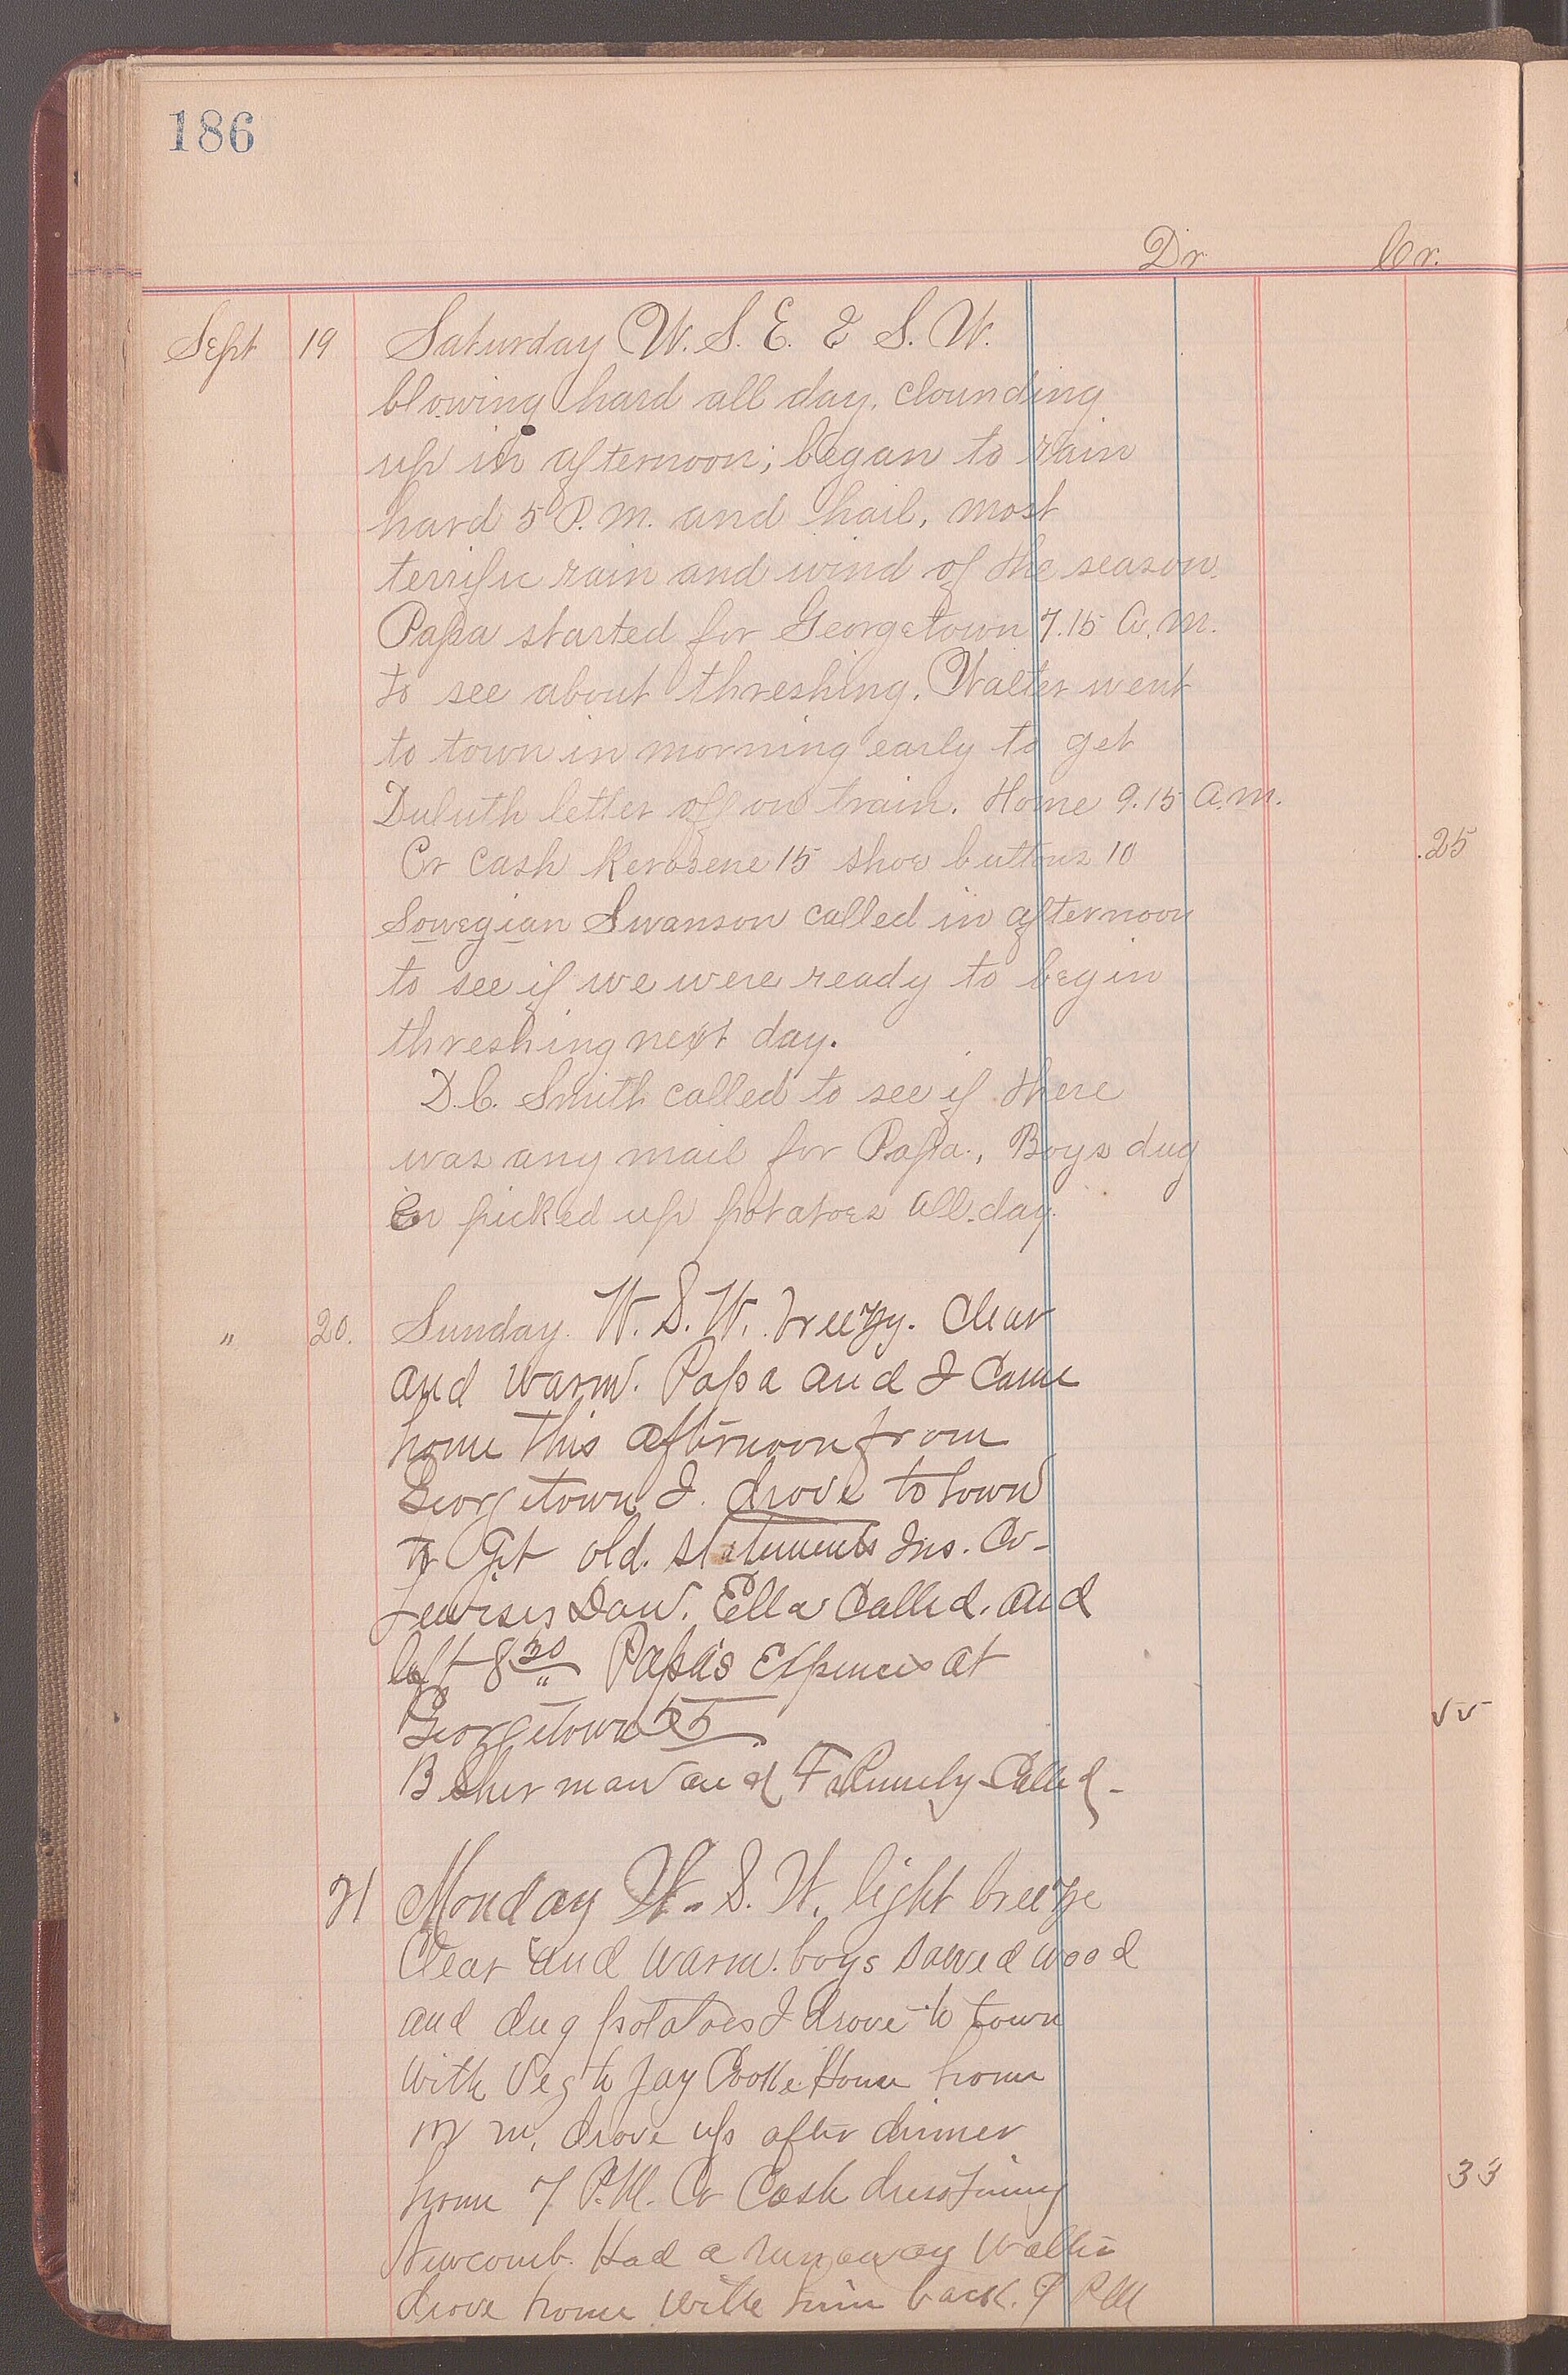 186
Dr Cr.
Sept 19 Saturday W. S. E. & S. W.
blowing hard all day, clounding
up in afternoon; began to rain
hard 5 P.M. and hail, most
terrific rain and wind of the season.
Papa started for Georgetown 7.15 A.M.
to see about threshing. Walter went
to town in morning early to get
Duluth letter off on train. Home 9.15 A.M.
Cr Cash Kerosene 15 shoe buttons 10 .25
Sowegian Swanson called in afternoon
to see if we were ready to begin
threshing next day.
D.C. Smith called to see if there
was any mail for Papa., Boys dug
picked up potatoes all day.
" 20. Sunday. W. S. W. breezy. Clear
and warm. Papa and I Came
home this afternoon from
Georgetown I. drove to town
to Get old. statements Ins. Co-
Dan. Ella Called. and
left 8 30 Papa's Expences at
Georgetown 55 55
B Sherman and Family Called-
21 Monday W. S. W. light breeze
Clear and warm. boys sawed wood
and dug potatoes I drove to town
with Veg to Jay Cooke House home
M m, drove up after dinner
home 7 P.M. Cr Cash dress lining 33
Newcomb. Had a runaway Walter
drove home with him back. 9 PM